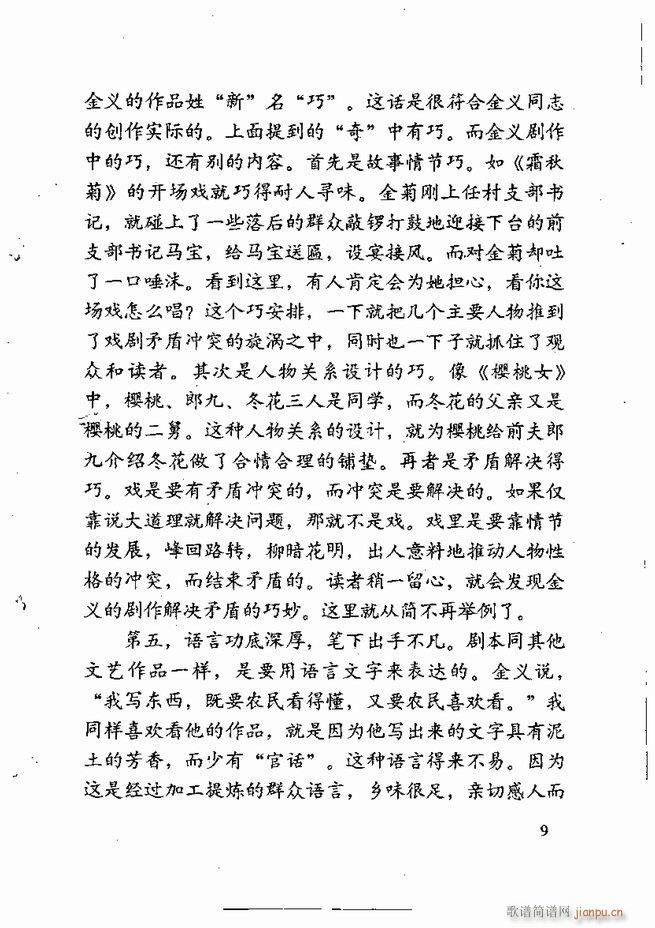 金义的作品姓“新”名“巧”。这话是很符合金义同志
的创作实际的。上面提到的“奇”中有巧。而金义剧作
中的巧，还有别的内容。首先是故事情节巧。如《霜秋
菊》的开场戏就巧得耐人寻味。金菊刚上任村支部书
记，就碰上了一些落后的群众敲锣打鼓地迎接下台的前
支部书记马宝，给马宝送匾，设宴接风。而对金菊却吐
了一口唾沫。看到这里，有人肯定会为她担心，看你这
场戏怎么唱？这个巧安排，一下就把几个主要人物推到
了戏剧矛盾冲突的旋涡之中，同时也一下子就抓住了观
众和读者。其次是人物关系设计的巧。像《樱桃女》
中，樱桃、郎九、冬花三人是同学，而冬花的父亲又是
樱桃的二舅。这种人物关系的设计，就为樱桃给前夫郎
九介绍冬花做了合情合理的铺垫。再者是矛盾解决得
巧。戏是要有矛盾冲突的，而冲突是要解决的。如果仅
靠说大道理就解决问题，那就不是戏。戏里是要靠情节
的发展，峰回路转，柳暗花明，出人意料地推动人物性
格的冲突，而结束矛盾的。读者稍一留心，就会发现金
义的剧作解决矛盾的巧妙。这里就从简不再举例了。
第五，语言功底深厚，笔下出手不凡。剧本同其他
文艺作品一样，是要用语言文字来表达的。金义说，
“我写东西，既要农民看得懂，又要农民喜欢看。”我
同样喜欢看他的作品，就是因为他写出来的文字具有泥
土的芳香，而少有“官话”。这种语言得来不易。因为
这是经过加工提炼的群众语言，乡味很足，亲切感人而
9
歌谱简谱网 jianpu.cn